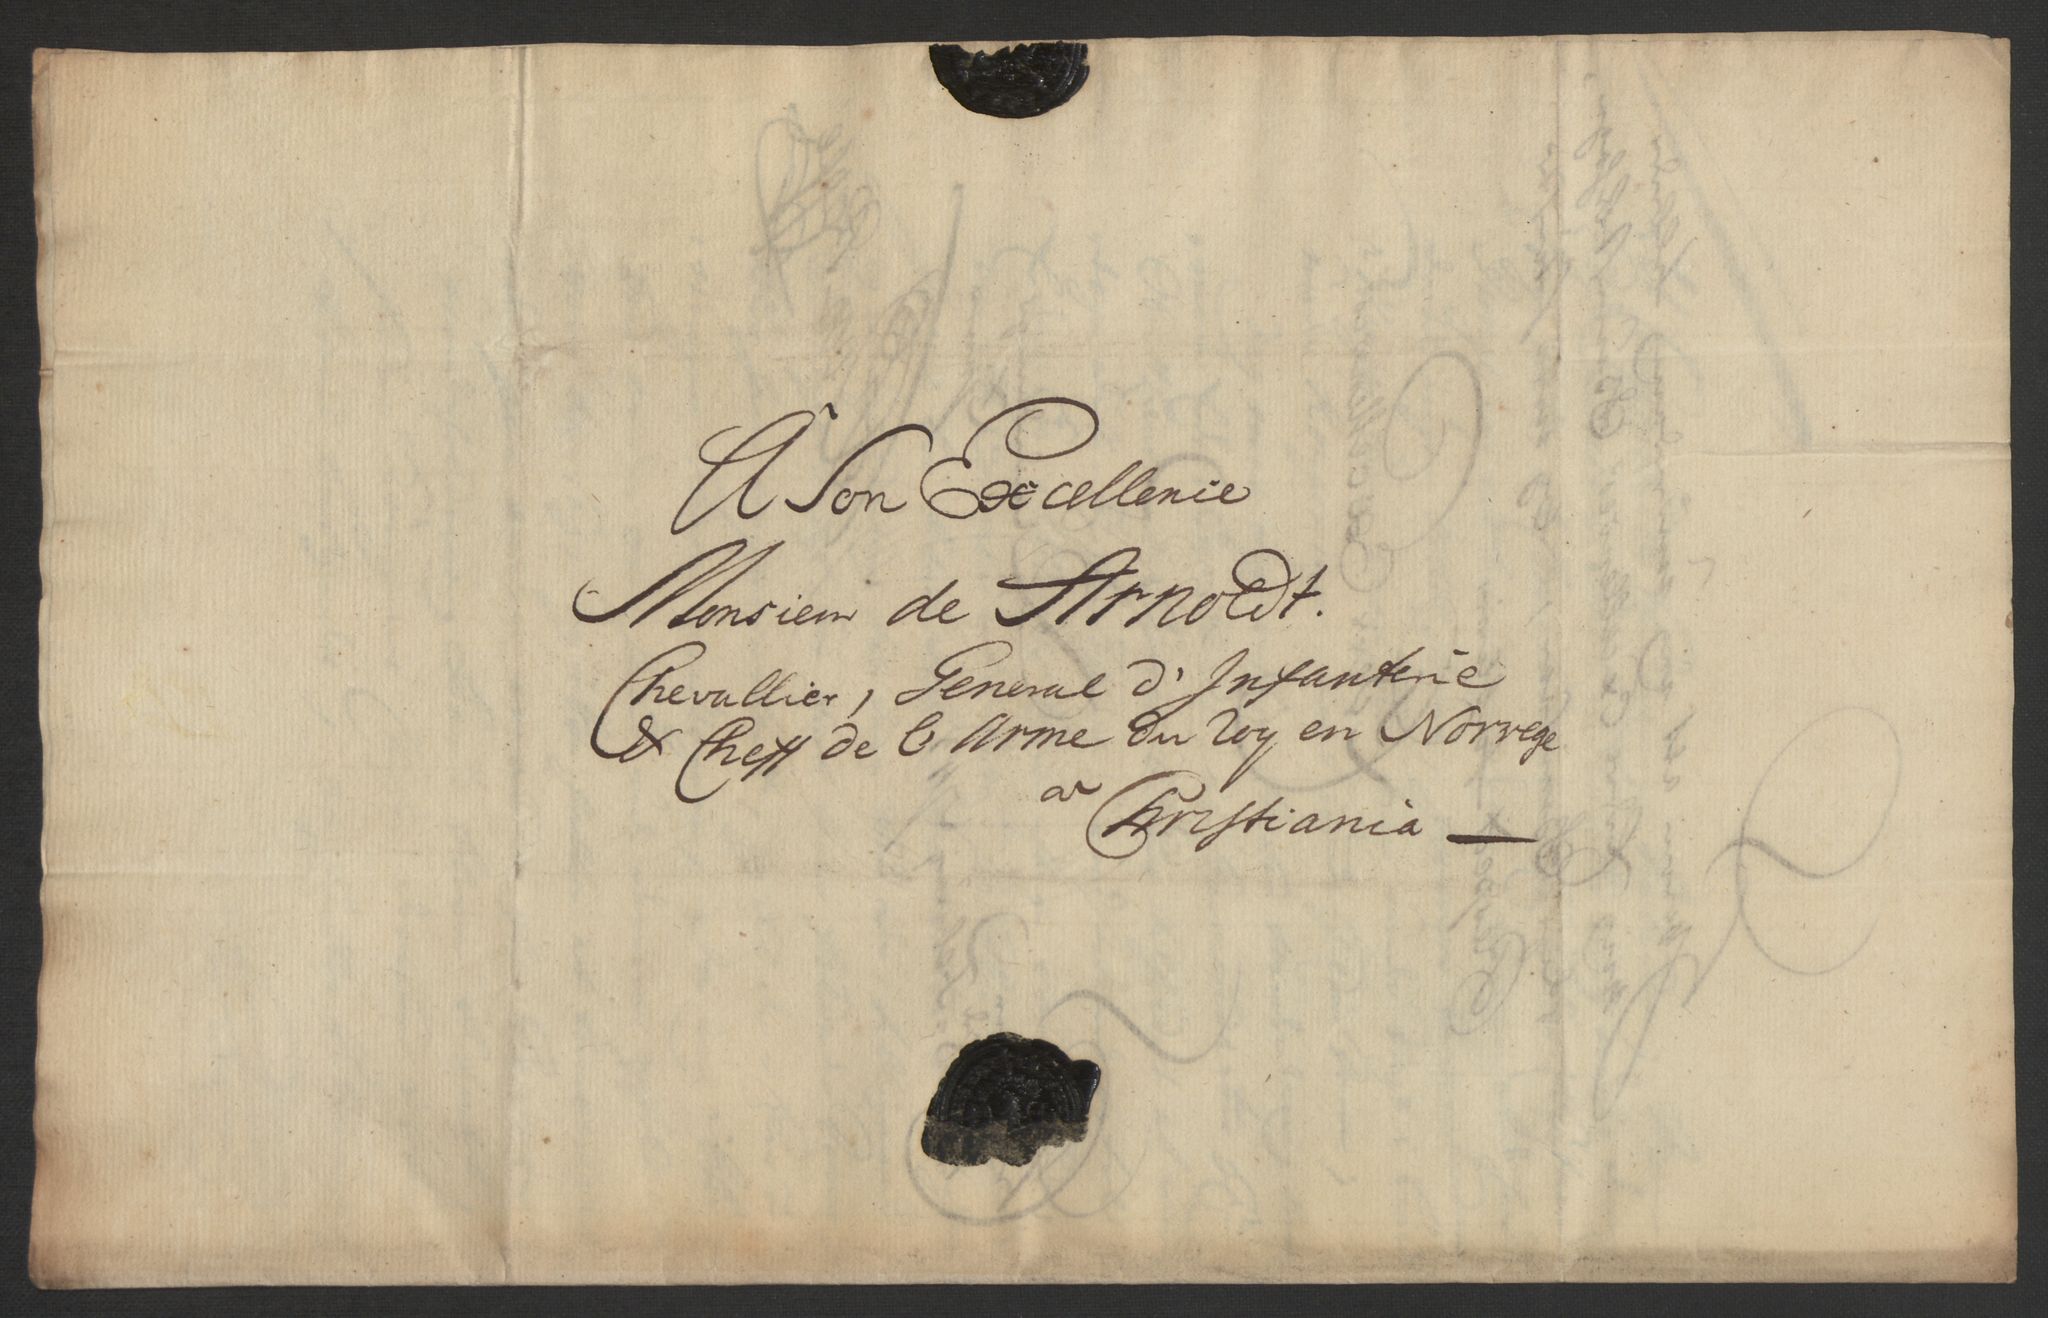 A Son Excellence
Monsieur de Arnoldt.
Chevallier, General d'Infanterie
& Cheff de l'Arme du Roy en Norvege
a Christiania